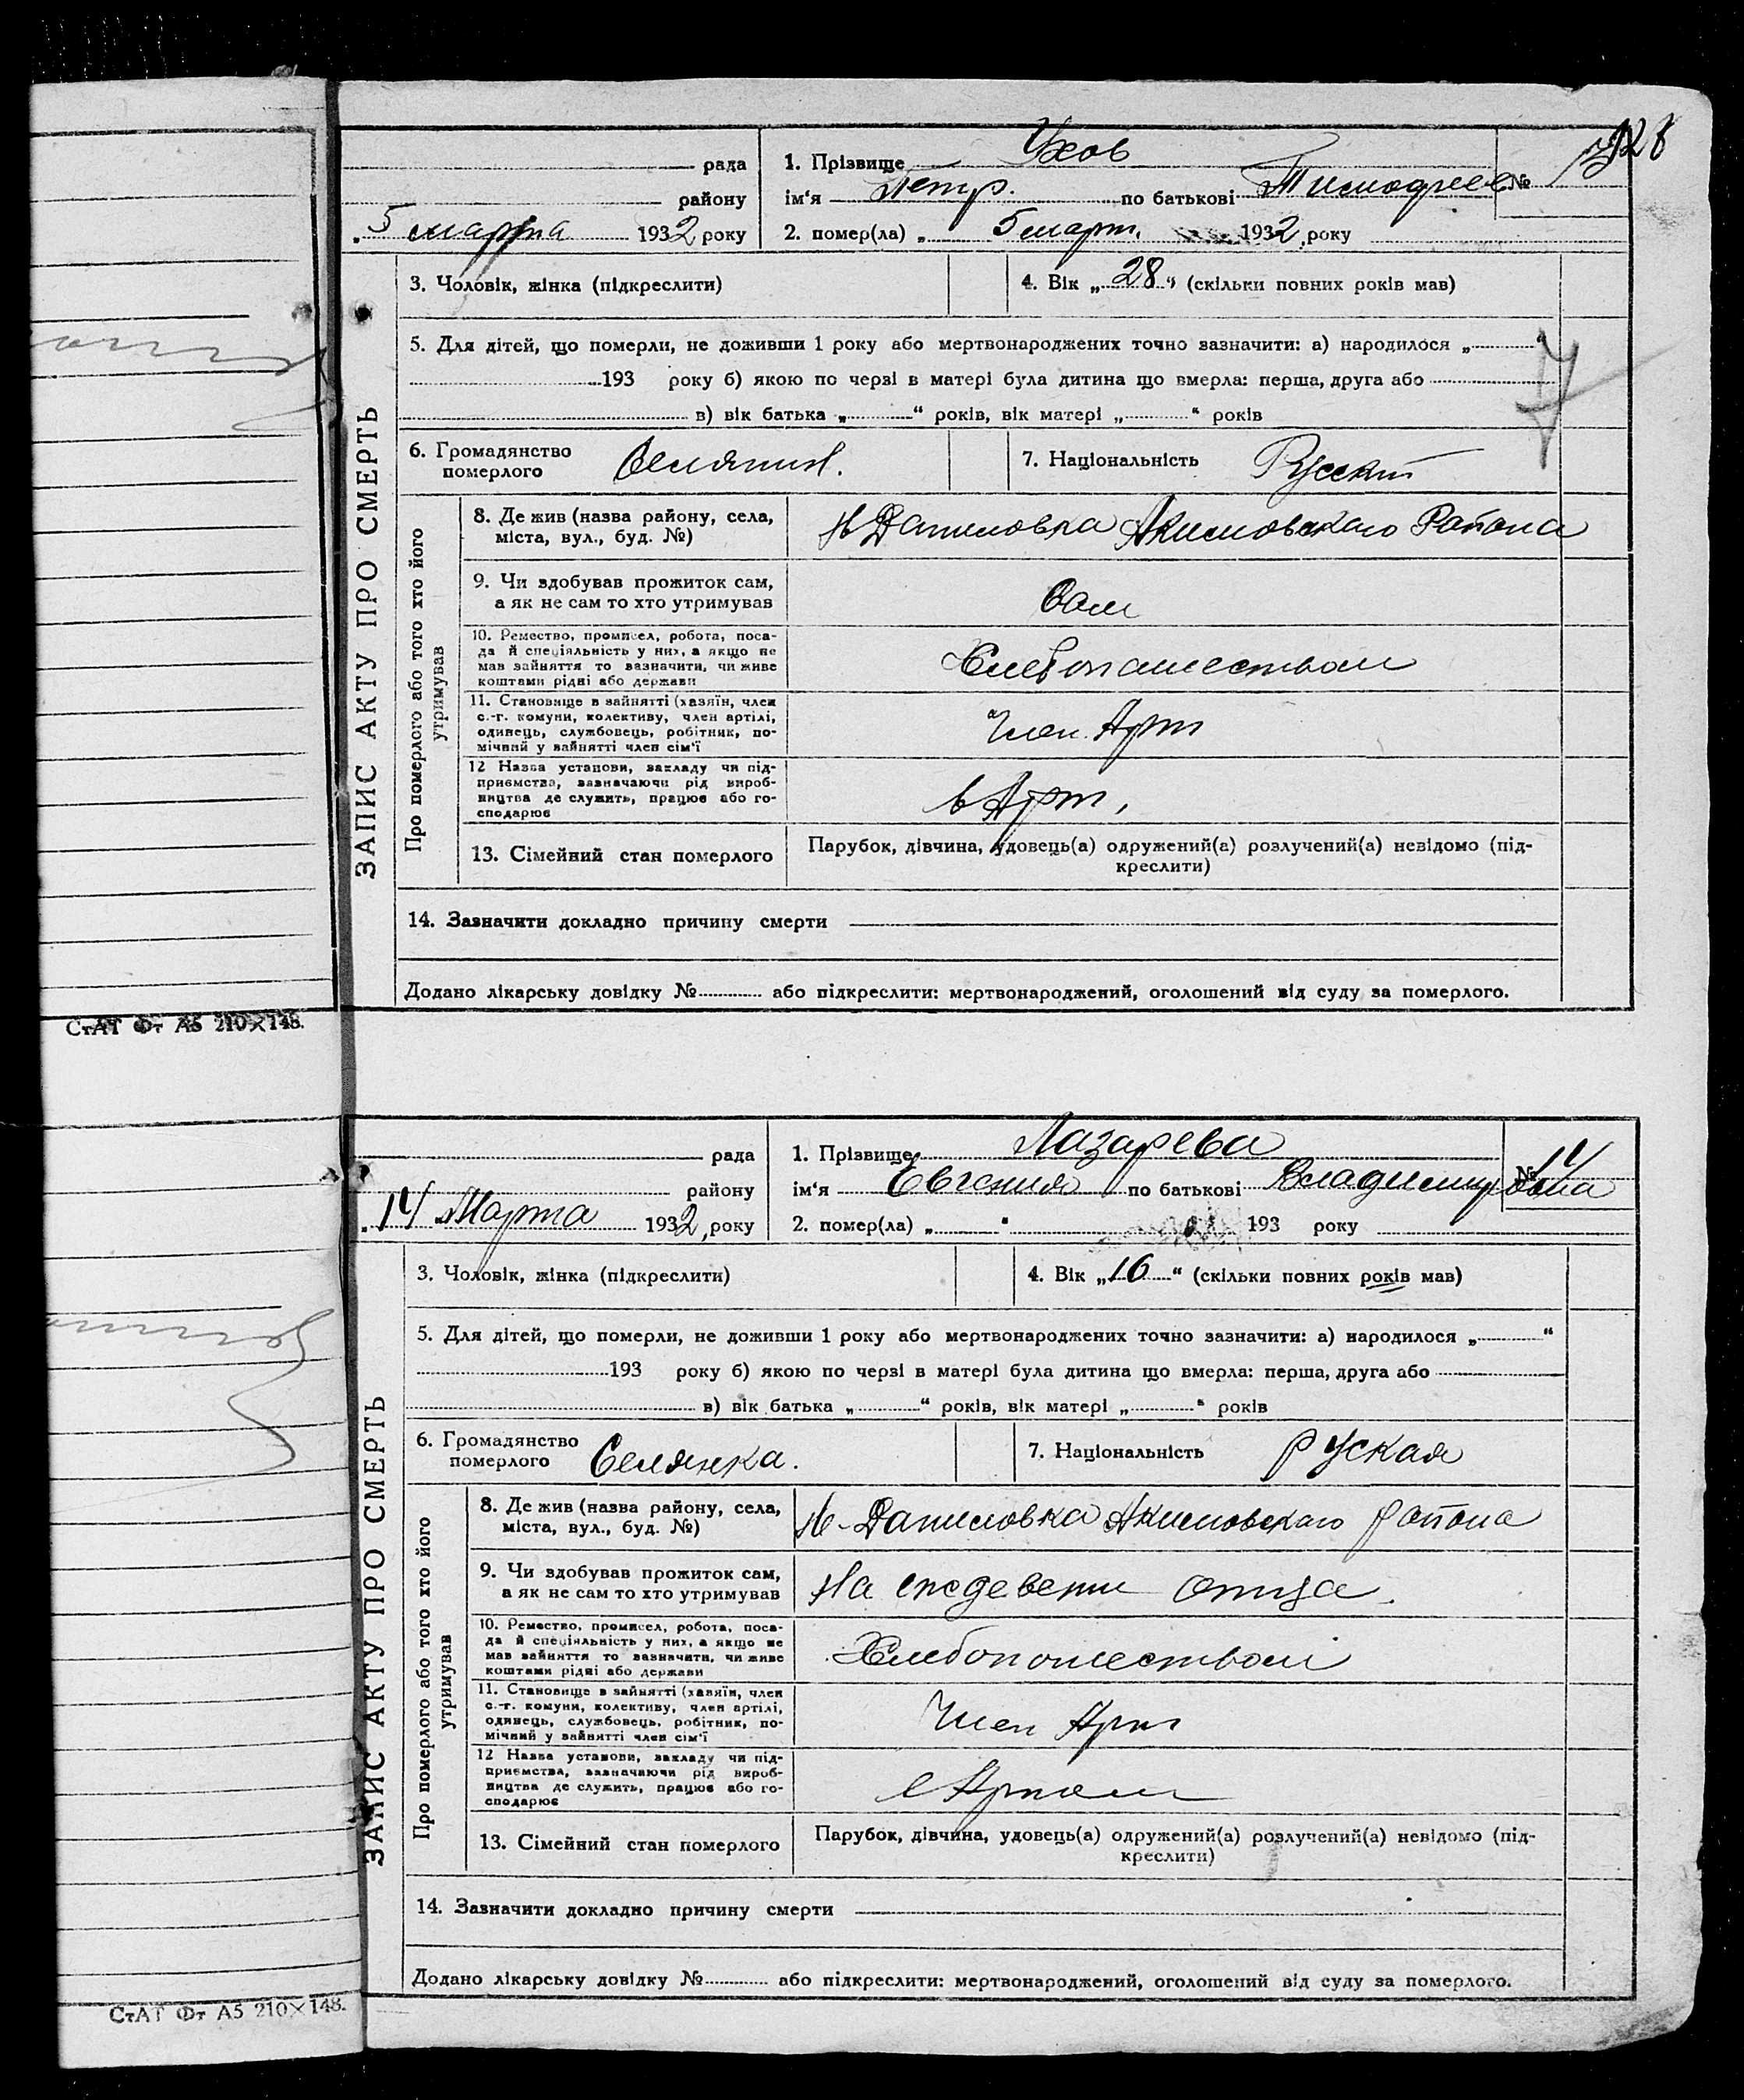 рада
району
„ 5 марта 1932 року
1. Прізвище Ухов
ім‘я Петр. по батькові Тимофеев №
2. помер(ла) „ 5 март. 1932 року
ЗАПИС АКТУ ПРО СМЕРТЬ
3. Чоловік, жінка (підкреслити)
4. Вік „ 28 “ (скільки повних років мав)
5. Для дітей, що померли, не доживши 1 року або мертвонароджених точно зазначити: а) народилося „ “
193 року б) якою по черзі в матері була дитина що вмерла: перша, друга або
в) вік батька „ “ років, вік матері „ “ років
6. Громадянство
померлого
Селянин.
7. Національність Русский
Про померлого або того хто його
утримував
8. Де жив (назва району, села,
міста, вул., буд. №)
Н Даниловка Акимовскаго Района
9. Чи здобував прожиток сам,
а як не сам то хто утримував
Сам
10. Ремество, промисел, робота, поса-
да й спеціяльність у них, а якщо не
мав зайняття то вазначити, чи живе
коштами рідні або держави
Хлебопашеством
11. Становище в зайнятті (хазяїн, член
с.-г. комуни, колективу, член артілі,
одинець, службовець, робітник, по-
мічний у вайнятті член сім‘ї
Член. Арт
12 Назва установи, закладу чи під-
приємства, вазначаючи рід вироб-
ництва де служить, працює або го-
сподарює
в Арт,
13. Сімейний стан померлого
Парубок, дівчина, удовець(а) одружений(а) розлучений(а) невідомо (під-
креслити)
14. Зазначити докладно причину смерти
Додано лікарську довідку № або підкреслити: мертвонароджений, оголошений від суду за померлого.
СтАТ Фт А5 210×148.
рада
району
„ 14 Марта 1932 року
1. Прізвище Лазарева
ім‘я Евгения по батькові Владимировна
№ 14
2. помер(ла) „ “ 193 року
ЗАПИС АКТУ ПРО СМЕРТЬ
3. Чоловік, жінка (підкреслити)
4. Вік „ 16 “ (скільки повних років мав)
5. Для дітей, що померли, не доживши 1 року або мертвонароджених точно зазначити: а) народилося „ “
193 року б) якою по черзі в матері була дитина що вмерла: перша, друга або
в) вік батька „ “ років, вік матері „ “ років
6. Громадянство
померлого
Селянка.
7. Національність Руская
Про померлого або того хто його
утримував
8. Де жив (назва району, села,
міста, вул., буд. №)
Н-Даниловка Акимовскаго района
9. Чи здобував прожиток сам,
а як не сам то хто утримував
На отца.
10. Ремество, промисел, робота, поса-
да й спеціяльність у них, а якщо не
мав вайняття то вазначити, чи живе
коштами рідні або держави
Хлебопошеством
11. Становище в зайнятті (хазяїн, член
с.-г. комуни, колективу, член артілі,
одинець, службовець, робітник, по-
мічний у вайнятті член сім‘ї
Член Арт
12 Назва установи, закладу чи під-
приємства, вазначаючи рід вироб-
ництва де служить, працює або го-
сподарює
13. Сімейний стан померлого
Парубок, дівчина, удовець(а) одружений(а) розлучений(а) невідомо (під-
креслити)
14. Зазначити докладно причину смерти
Додано лікарську довідку № або підкреслити: мертвонароджений, оголошений від суду за померлого.
СтАТ Фт А5 210×148.